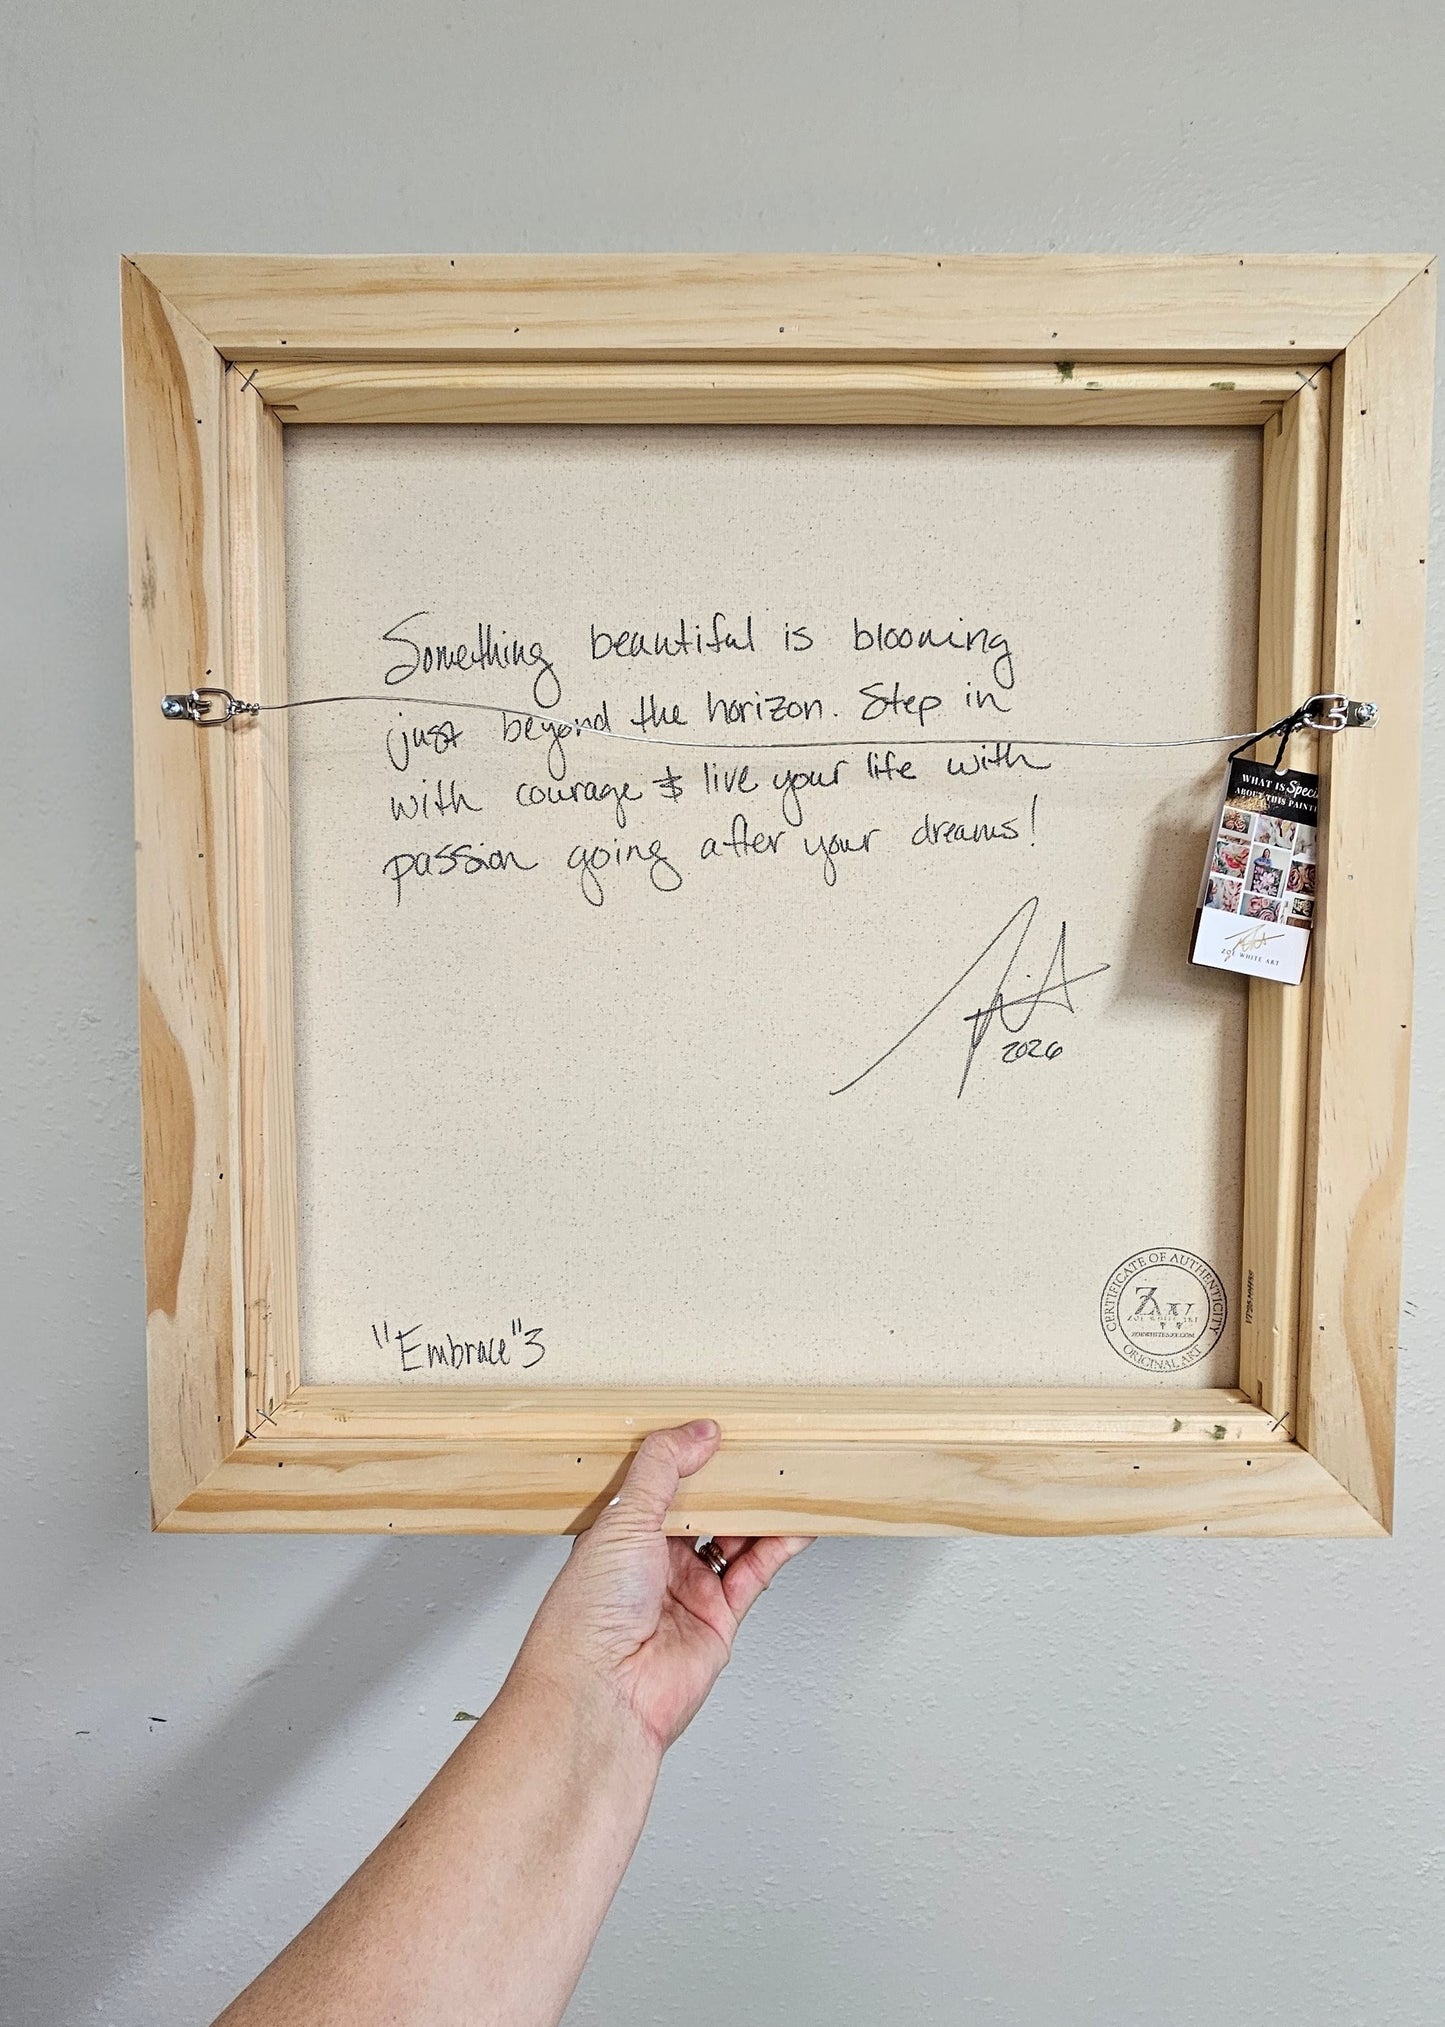 Something beautiful is blooming
just beyond the horizon. Step in
with courage & live your life with
passion going after your dreams!
2026
WHAT IS Speci
ABOUT THIS PAINTI
ZOË WHITE ART
"Embrace" 3
CERTIFICATE OF AUTHENTICITY
ZOË WHITE ART
ORIGINAL ART